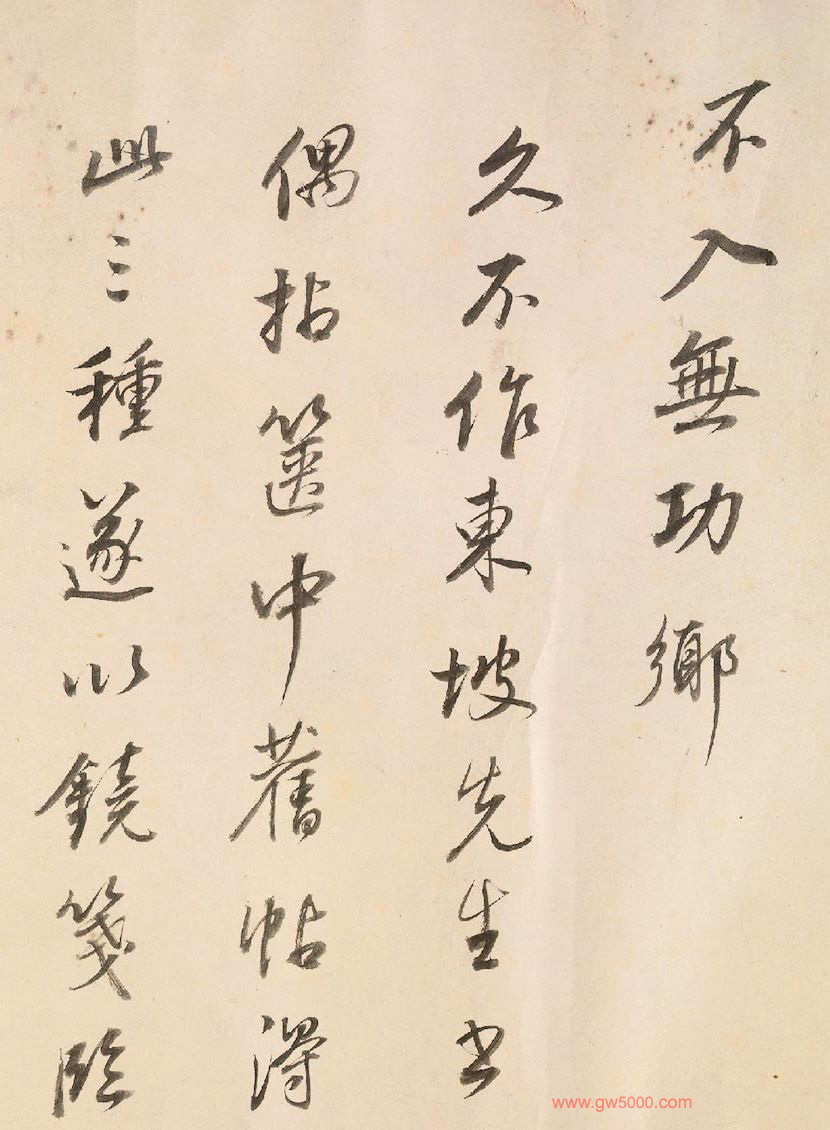 不入無功鄉
久不作東坡先生书
偶拈篋中舊帖得
此三種遂以鏡箋臨
www.gw5000.com